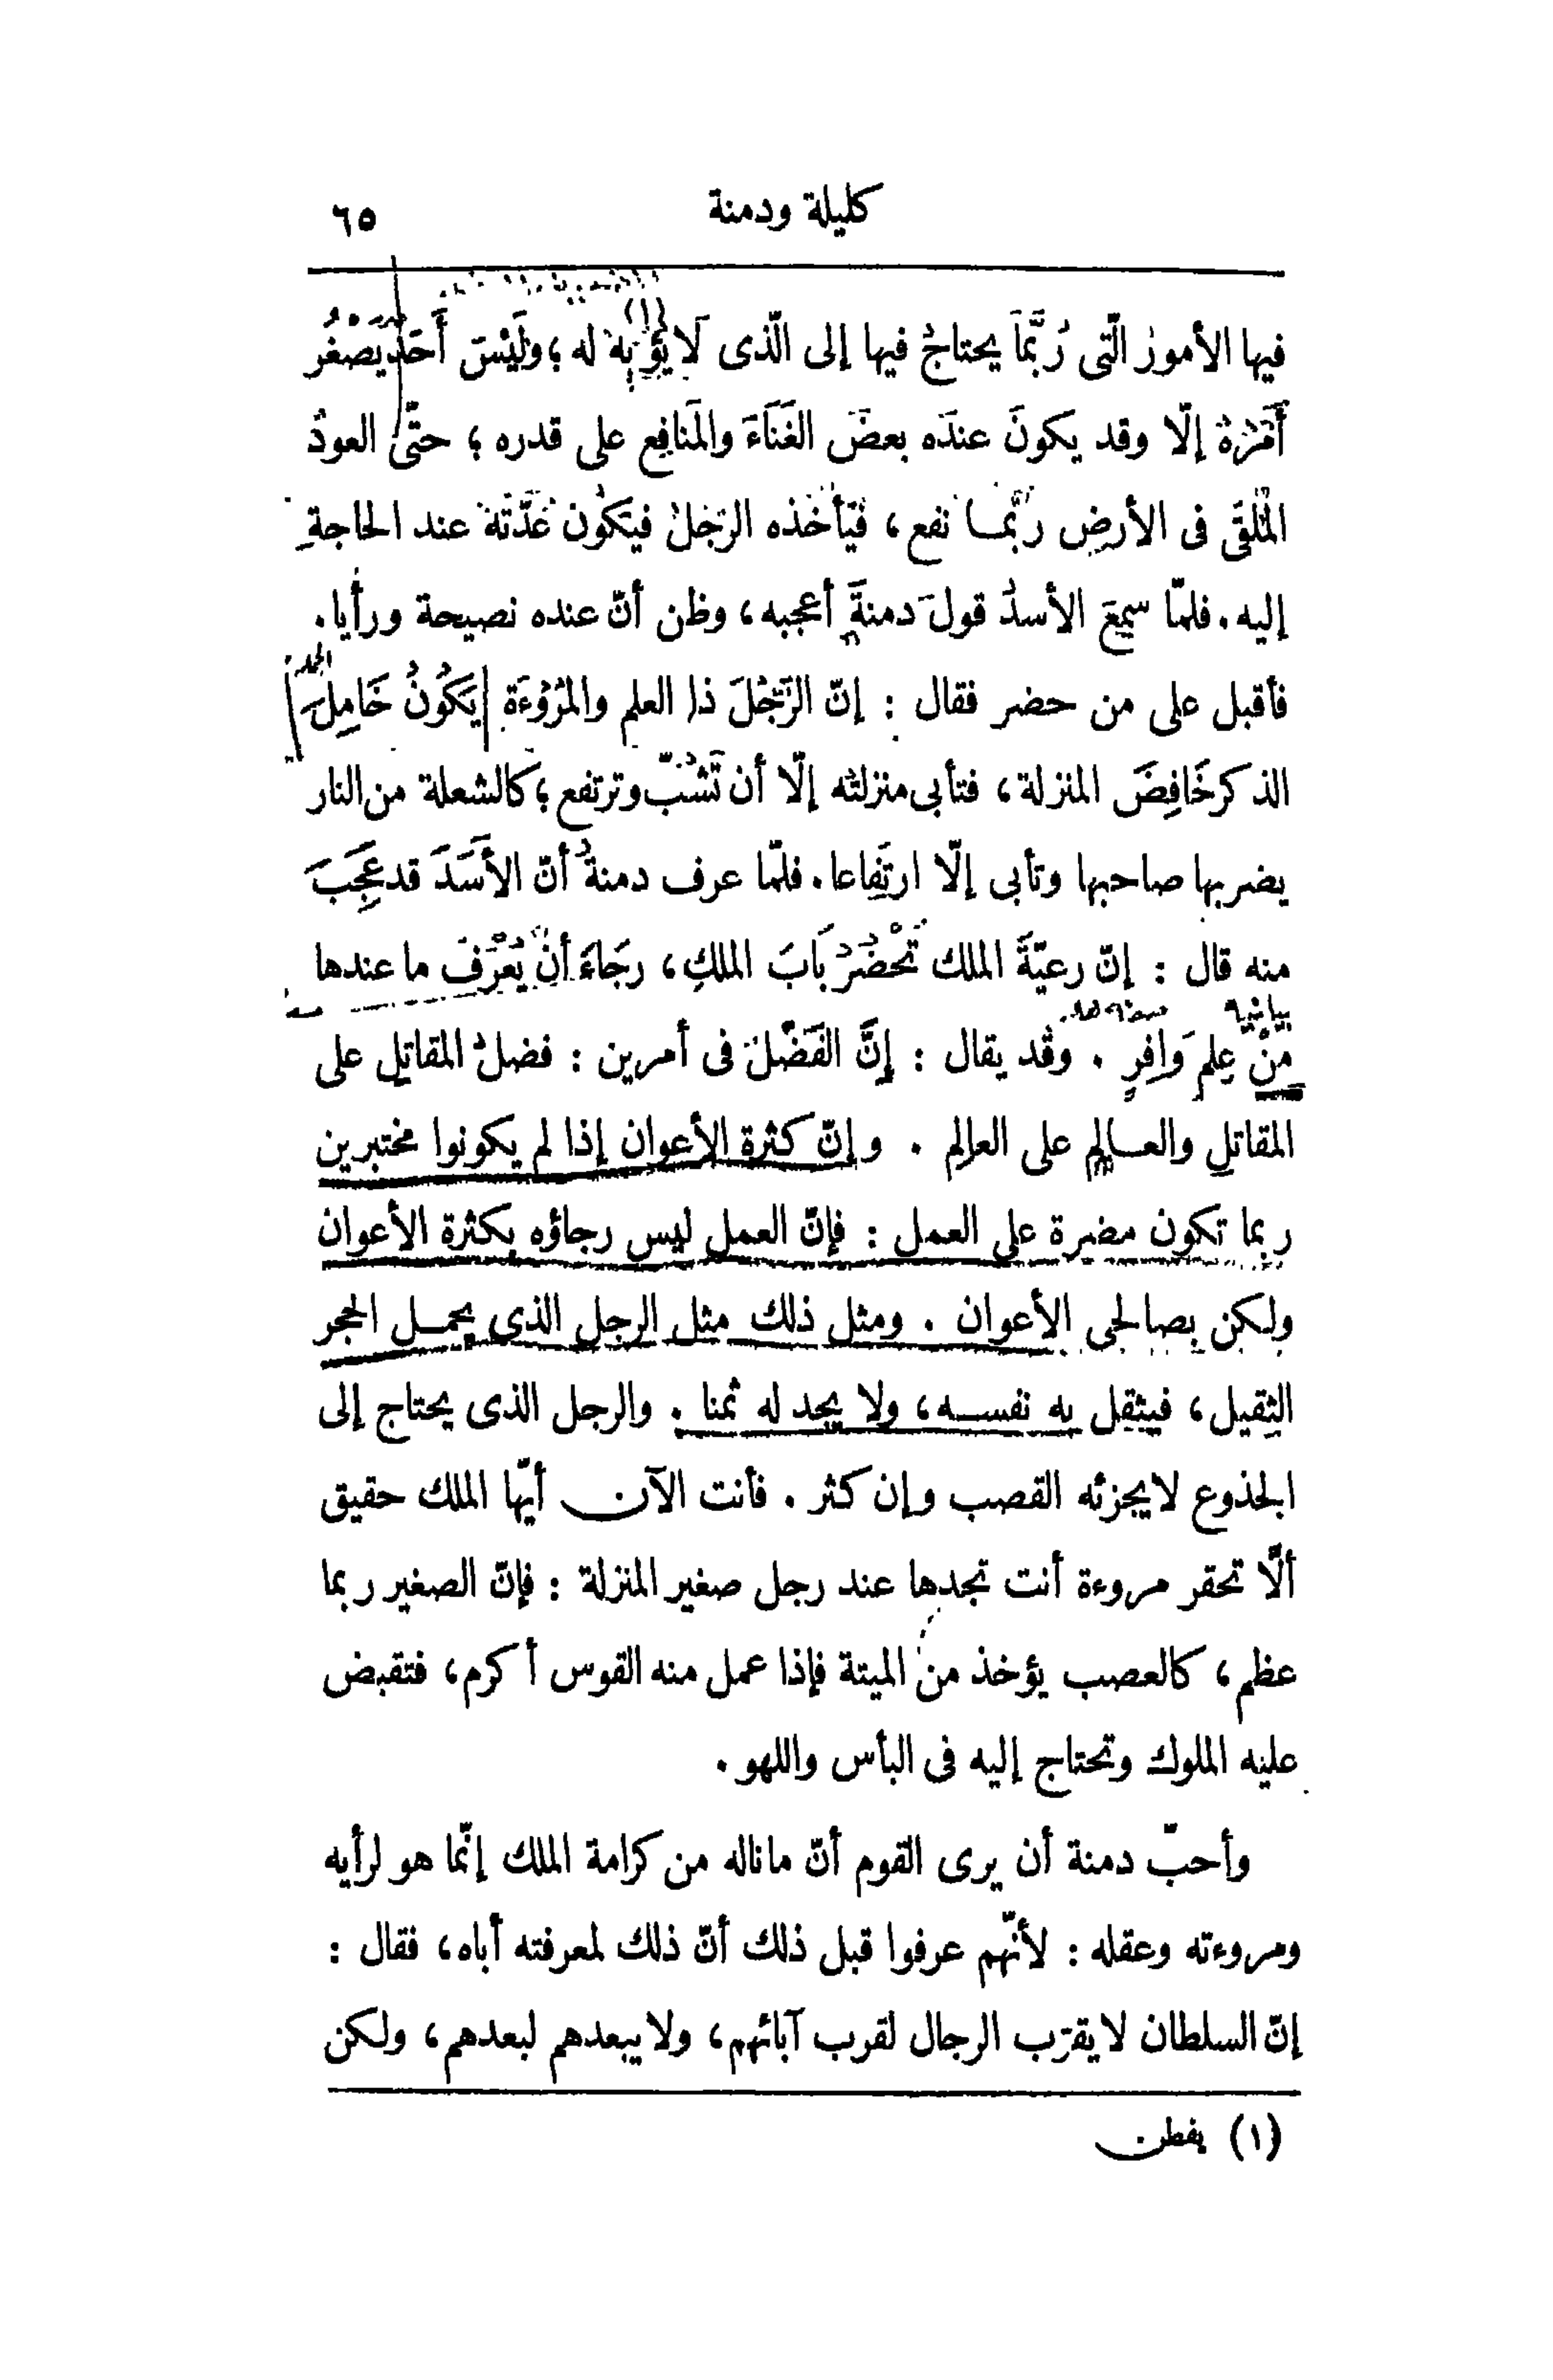 كليلة ودمنة ٦٥
فيها الأمور الّتى رُبَّمَا يحتاجُ فيها إلى الّذى لَا يُؤْبِهُ (١) له ؛ ولَيْسَ أَحَدٌ يَصْغُرُ
أَمْرُهُ إلّا وقد يكونَ عندَه بعضَ الغَنَاءَ والمَنافِع على قدره ؛ حتّى العودُ
المُلْقَى فى الأرضِ ربَّمـا نفع ، فَيَأْخُذه الرّجُلُ فيَكُون عُدَّتَهُ عند الحاجةِ
إليه . فلمّا سمِعَ الأسدُ قولَ دمنةَ أعجبه ، وظن أنّ عنده نصيحة ورأيا .
فأقبل على من حضر فقال : إنّ الرَّجُلَ ذا العلم والمُرُوْءَة يَكُونُ خَامِلَ
الذكر خَافِضَ المنزلة ، فتأبى منزلتُه إلّا أن تَشُبّ وترتفع ؛ كالشعلة من النار
يضربها صاحبها وتأبى إلّا ارتِفَاعا . فلمّا عرف دمنةُ أنّ الأَسَدَ قد عَجِبَ
منه قال : إنّ رعيّةَ الملك تَحْضُرُ بَابَ الملكِ ، رجَاءَ أنْ يُعْرَفَ ما عندها
مِنْ عِلمٍ وَافِرٍ . وقد يقال : إنَّ الفَضْلَ فى أمرين : فضلُ المقاتلِ على
المقاتلِ والعـالِمِ على العالم . وإنّ كثرة الأعوان إذا لم يكونوا مختبرين
ربما تكون مضرة على العمل : فإنّ العمل ليس رجاؤه بكثرة الأعوان
ولكن بصالحى الأعوان . ومثل ذلك مثل الرجل الذى يحمـل الحجر
الثقيل ، فيثقِل به نفسـه ، ولا يجد له ثمنا . والرجل الذى يحتاج إلى
الجذوع لا يجزئه القصب وإن كثر . فأنت الآن أيّها الملك حقيق
ألّا تحقر مروءة أنت تجدها عند رجل صغير المنزلة : فإنّ الصغير ربما
عظم ، كالعصب يؤخذ من الميتة فإذا عمل منه القوس أكرم ، فتقبض
عليه الملوك وتحتاج إليه فى البأس واللهو .
وأحبّ دمنة أن يرى القوم أنّ ما ناله من كرامة الملك إنّما هو لرأيه
ومروءته وعقله : لأنّهم عرفوا قبل ذلك أنّ ذلك لمعرفته أباه ، فقال :
إنّ السلطان لا يقرّب الرجال لقرب آبائهم ، ولا يبعدهم لبعدهم ، ولكن
(١) يفطن